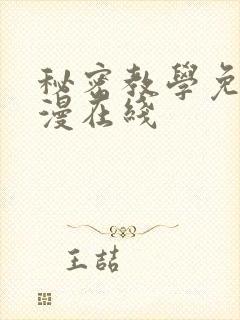 秘密教學免
漫在綫
王喆